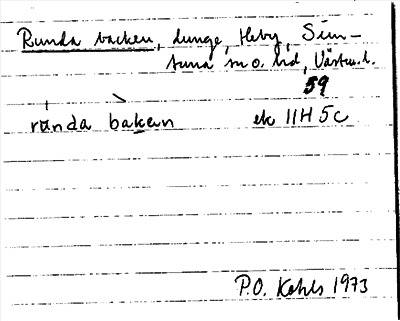 Runda backen, dunge, Heby, Sim-
tuna m. o. hd, Västm. l.
59
rúnda bàkan
ek 11H 5c
P.O. Kohls 1973